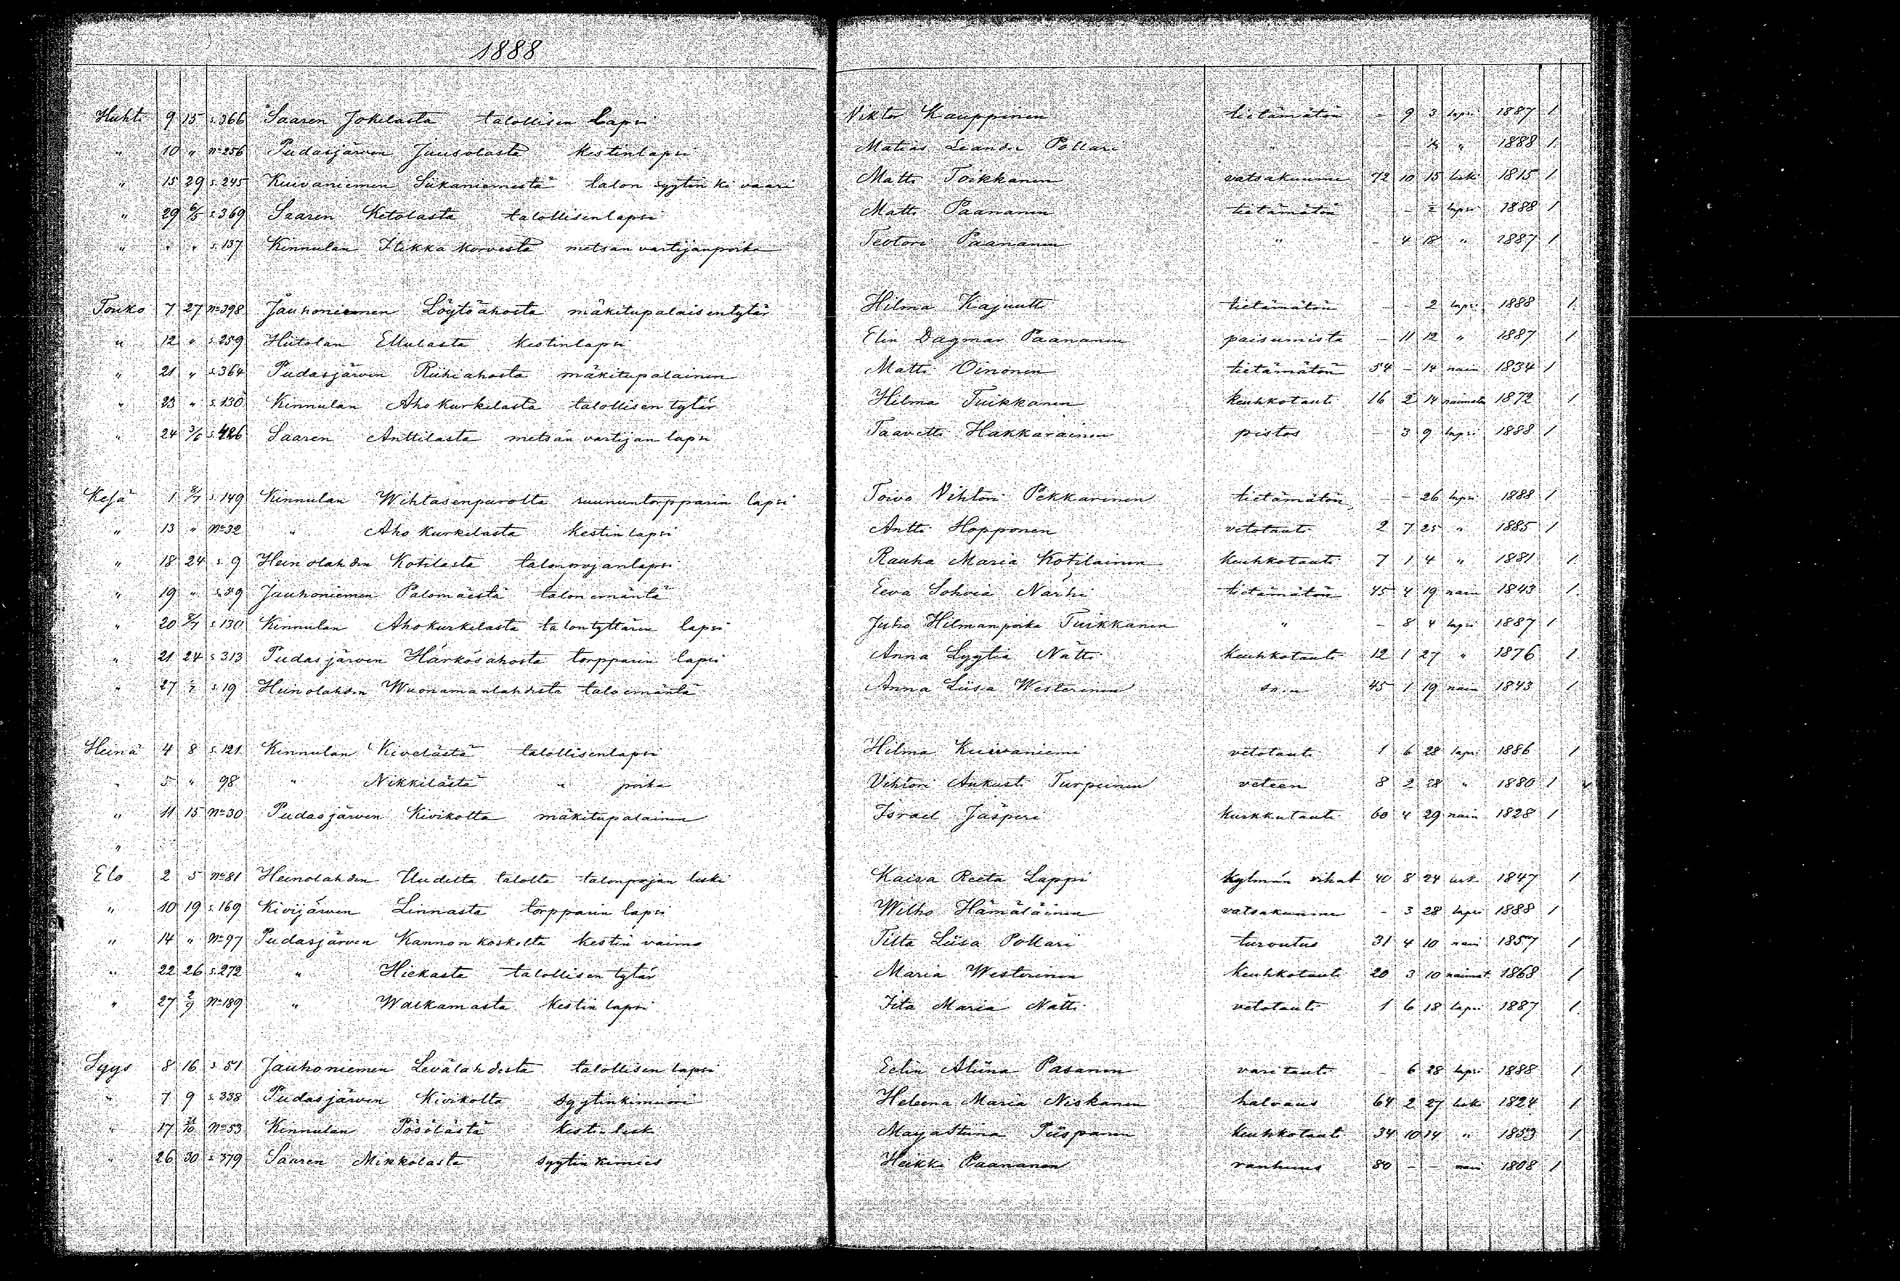 1888
Huhti 9 15 s.366 Saaren Jokelasta talollisen lapsi Viktor Kauppinen tietämätön - 9 3 lapsi 1887 1
" 10 " No 256 Pudasjärven Juusolasta kestinlapsi Matias Leander Pollari " - - " 1888 1
" 15 29 s.245 Kuivaniemen Siikaniemestä talon syytinki vaari Matti Toikkanen vatsakuume 72 10 15 leski 1815 1
" 29 6/5 s.369 Saaren Ketolasta talollisenlapsi Matti Paananen tietämätön - - 2 lapsi 1888 1
" " " s.137 Kinnulan Ilikka korvesta metsän vartijanpoika Teotori Paananen " - 4 18 " 1887 1
Touko 7 27 No 398 Jauhoniemen Löytöahosta mäkitupalaisentytär Hilma Kajuutti tietämätön - - 2 lapsi 1888 1
" 12 " s.259 Hiitolan Ellulasta kestinlapsi Elin Dagmar Paananen paisumista - 11 12 " 1887 1
" 21 " s.364 Pudasjärven Riihiahosta mäkitupalainen Matti Oinonen tietämätön 54 - 14 nain 1834 1
" 23 " s.130 Kinnulan Ahokurkelasta talollisen tytär Hilma Tuikkanen keuhkotauti 16 2 14 naimatn 1872 1
" 24 3/6 s.426 Saaren Anttilasta metsän vartijan lapsi Taavetti Hakkarainen pistos - 3 9 lapsi 1888 1
Kesä 1 s.149 Kinnulan Wihtasenpurolta ruununtorpparin lapsi Toivo Vihtori Pekkarinen tietämätön - - 26 lapsi 1888 1
" 13 " No 32 " Ahokurkelasta kestinlapsi Antti Hopponen vetotauti 2 7 25 " 1885 1
" 18 24 s.9 Heinolahden Kotilasta talonpojanlapsi Rauha Maria Kotilainen keuhkotauti 7 1 4 " 1881 1
" 19 " Jauhoniemen Palomäestä talon emäntä Eeva Sohvia Närhi tietämätön 45 4 19 nain 1843 1
" 20 s.130 Kinnulan Ahokurkelasta talontyttären lapsi Juho Hilmanpoika Tuikkanen " - 8 4 lapsi 1887 1
" 21 24 s.313 Pudasjärven Härkösahosta torpparin lapsi Anna Lyytia Nätti keuhkotauti 12 1 27 " 1876 1
" 27 s.19 Heinolahden Wuonamanlahdesta taloemäntä Anna Liisa Westerinen 45 1 19 nain 1843 1
Heinä 4 8 s.121 Kinnulan Kivelästä talollisenlapsi Hilma Kuivaniemi vetotauti 1 6 28 lapsi 1886 1
" 5 " 98 " Nikkilästä " poika Vihtori Aukusti Turpeinen veteen 8 2 28 " 1880 1
" 11 15 No 30 Pudasjärven Kivikolta mäkitupalainen Israel Jäsperi kurkkutauti 60 4 29 nain 1828 1
"
Elo 2 5 No 81 Heinolahden Uudelta talolta talonpojan leski Kaisa Reeta Lappi kylmän vihat 40 8 24 lesk 1847 1
" 10 19 s.169 Kivijärven Linnasta torpparin lapsi Wilho Hämäläinen vatsakuume - 3 28 lapsi 1888 1
" 14 " No 97 Pudasjärven Kannonkoskelta kestin vaimo Tilta Liisa Pollari turvotus 31 4 10 nain 1857 1
" 22 26 s.272 " Hiekasta talollisen tytär Maria Westerinen keuhkotauti 20 3 10 naimat. 1868 1
" 27 2/9 No 189 " Walkamasta kestin lapsi Iita Maria Nätti vetotauti 1 6 18 lapsi 1887 1
Syys 8 16 s.51 Jauhoniemen Levälahdesta talollisen lapsi Eelin Aliina Pasanen varitauti - 6 28 lapsi 1888 1
" 7 9 s.338 Pudasjärven Kivikolta syytinkimuori Heleena Maria Niskanen halvaus 64 2 27 lesk 1824 1
" 17 No 53 Kinnulan Pösölästä kesti-leski Maya Stiina Piispanen keuhkotauti 34 10 14 " 1853 1
" 26 30 s.379 Saaren Mikkolasta syytinkimies Heikki Paananen vanhuus 80 - - nain 1808 1